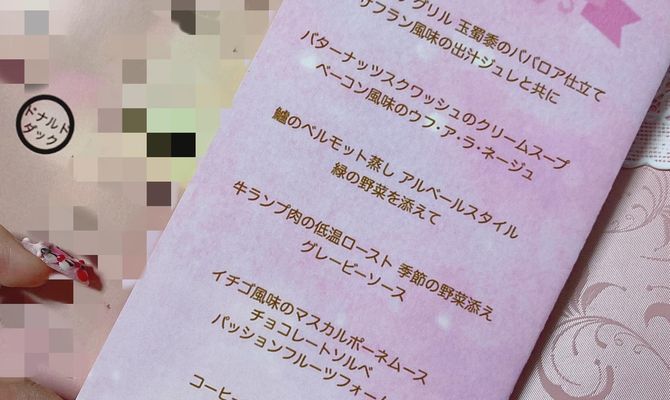 グリル 玉蜀黍のババロア仕立て
サフラン風味の出汁ジュレと共に
バターナッツスクワッシュのクリームスープ
ベーコン風味のウフ・ア・ラ・ネージュ
鱸のベルモット蒸し アルベールスタイル
緑の野菜を添えて
牛ランプ肉の低温ロースト 季節の野菜添え
グレービーソース
イチゴ風味のマスカルポーネムース
チョコレートソルベ
パッションフルーツフォーム
コーヒ
ドナルド
ダック